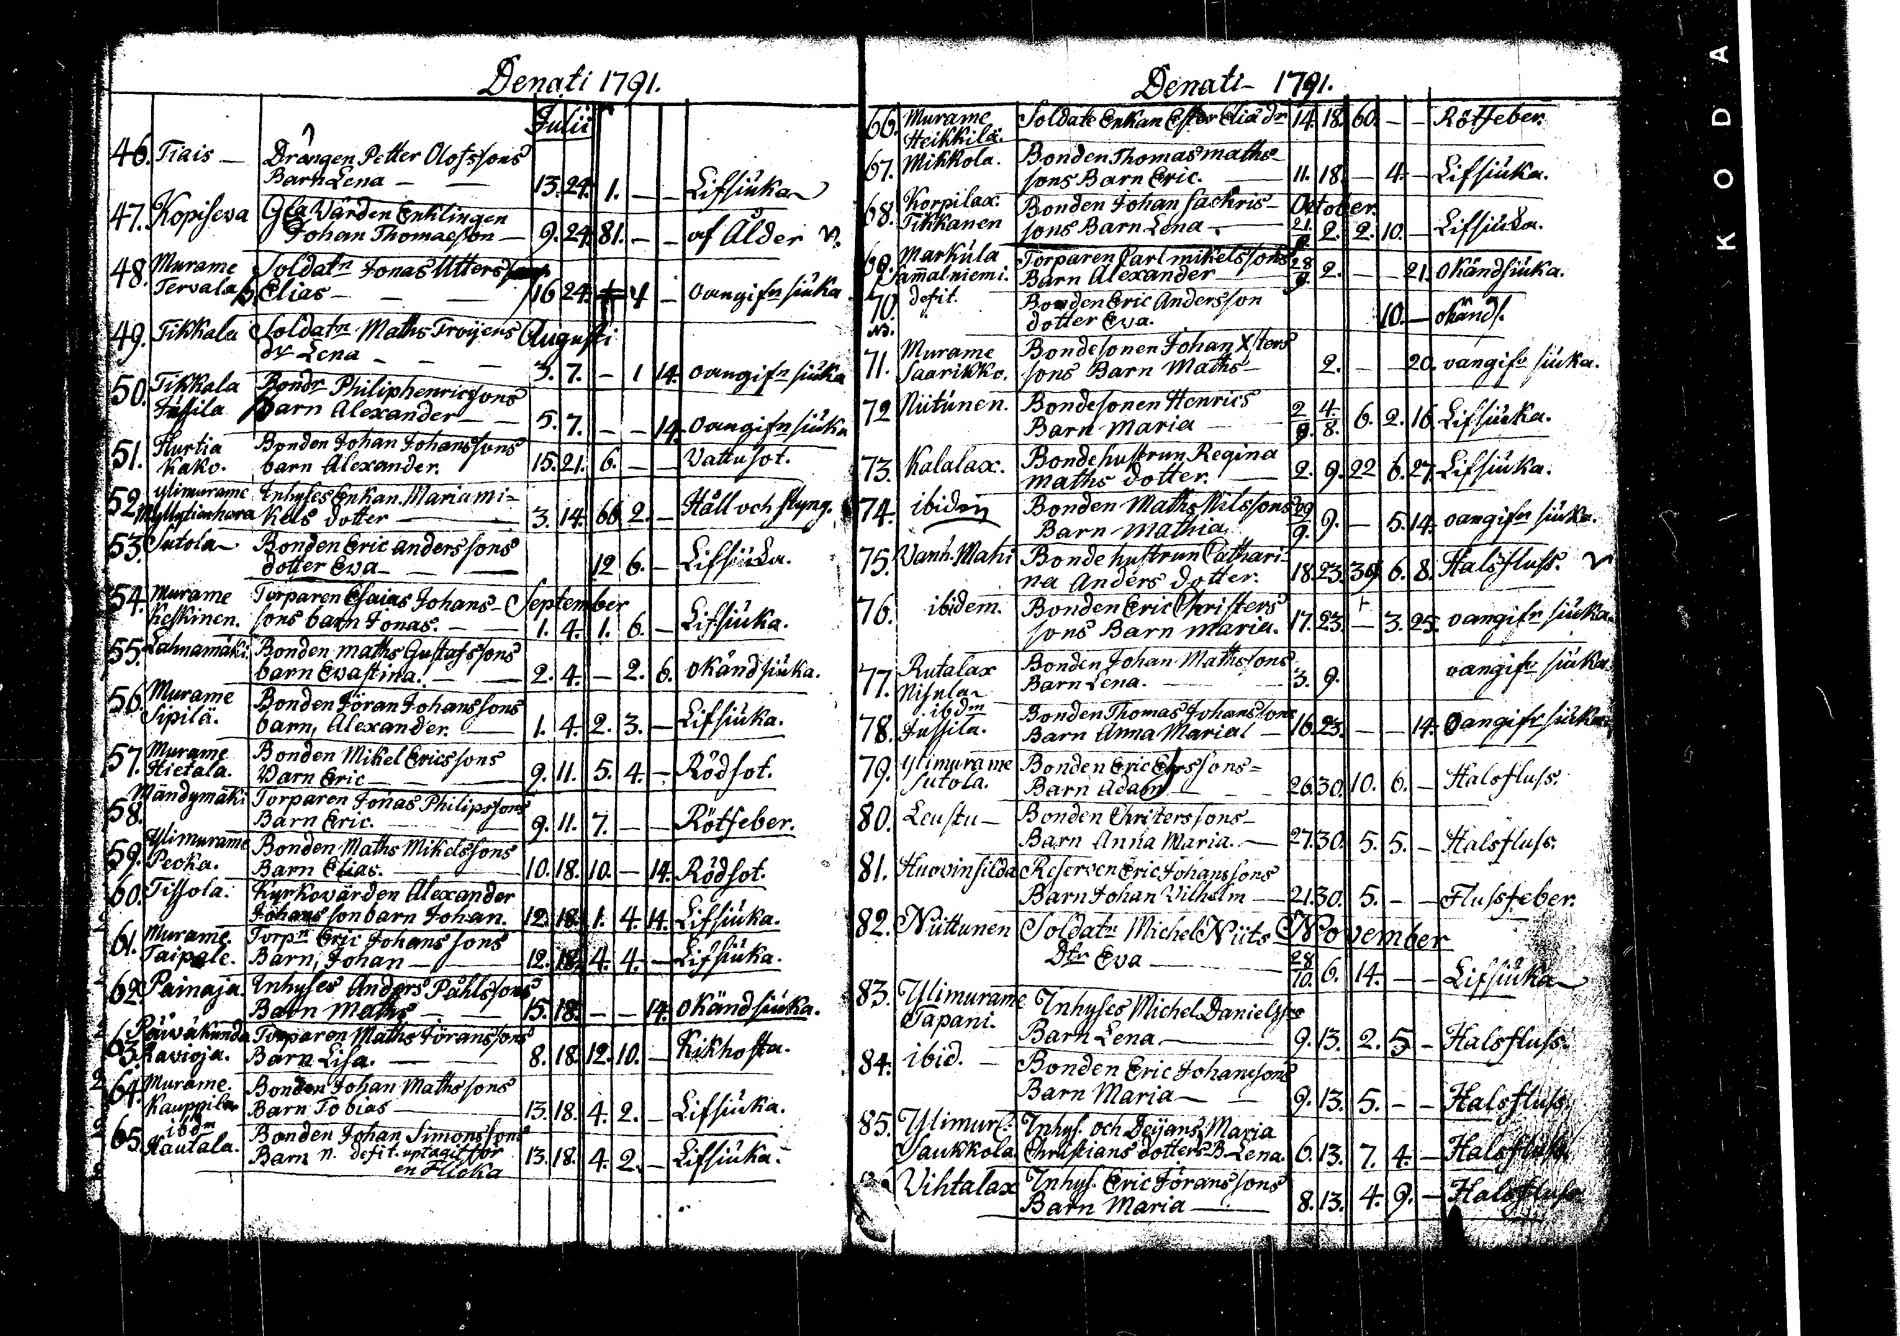 Denati 1791.
Julii
46. Tiais — Drängen Petter Olofssons
Barn Lena — — 13. 24. 1. — — Lifsiuka
47. Kopiseva Gla Värden Enklingen
Johan Thomasson — 9. 24. 81. — — af Ålder
48. Murame Soldatn Jonas Utters
Tervala b. Elias — — — 16 24. 4 — oangifn siuka
49. Tikkala Soldatn Maths Troijens Augusti
dr Lena — — — 3. 7. — 1 14. oangifn siuka
50. Tikkala Bondn Philip henricssons
Jussila Barn Alexander — 5. 7. — — 14. oangifn siuka
51. Hurtia Bonden Johan Johanssons
Kako. barn Alexander. 15. 21. 6. — — Vattusot.
52. Ylimurame Inhyses Enkan. Maria mi-
kels dotter — 3. 14. 66. 2. — Håll och styng.
53. Sutola Bonden Eric anderssons
dotter Eva — 12 6. — Lifsiuka.
54. Murame Torparen Esaias Johans- September
Keskinen. sons barn Jonas. — 1. 4. 1. 6. — Lifsiuka.
55. Lahnamäki. Bonden maths Gustafssons
barn Evastina. — 2. 4. — 2. 6. okänd siuka.
56. Murame Bonden Jöran Johanssons
Sipilä. barn, Alexander. — 1. 4. 2. 3. — Lifsiuka.
57. Murame Bonden Mikel Ericssons
Hietala. Barn Eric — 9. 11. 5. 4. — Rödsot.
58. Mändymäki Torparen Jonas Philipssons
Barn Eric. — 9. 11. 7. — — Rötfeber.
59. Ylimurame Bonden Maths Mikelssons
Peoka. Barn Elias. — 10. 18. 10. — 14. Rödsot.
60. Tissola. Kyrkovärden Alexander
Johanssonbarn Johan. 12. 18. 1. 4. 14. Lifsiuka.
61. Murame. Torpn Eric Johanssons
Taipale. Barn, Johan — 12. 18. 4. 4. — Lifsiuka.
62. Painaja. Inhyses Anders Påhlssons
Barn Maths — 15. 18. — — 14. okänd siuka.
63. Päiväkunda Torparen Maths Jöranssons
Ravioja. Barn Lisa. — 8. 18. 12. 10. — Kikhosta.
64. Murame. Bonden Johan Mathssons
Kauppila Barn Tobias — 13. 18. 4. 2. — Lifsiuka.
65. ibdm Bonden Johan Simonssons
Kautala. Barn n. defit. uptagit för 13. 18. 4. 2. — Lifsiuka.
en Flicka
Denati — 1791.
66. Murame Soldate Enkan Ester Eliæ dr 14. 18. 60. — — Rötfeber.
Heikkilä.
67. Mikkola. Bonden Thomas maths-
sons Barn Eric. — 11. 18. — 4. — Lifsiuka.
68. Korpilax. Bonden Johan Sackris- October.
Tikkanen sons Barn Lena. — 21. 2. 2. 10. — Lifsiuka.
69. Markúla Torparen Carl mikelssons 28
Samalniemi. Barn Alexander — 9. 2. — — 21. okändsiuka.
70. defit. Bonden Eric Andersson
dotter Eva. 10. — okänd.
N3.
71. Murame Bondesonen Johan Xsters
Saarikko. sons Barn Maths — 2. — — 20. oangifn siuka.
72. Niitunen. Bondesonen Henrics 2. 4.
Barn Maria — 9. 8. 6. 2. 16. Lifsiuka.
73. Kalalax. Bondehustrun Regina
maths dotter. — 2. 9. 22 6. 27. Lifsiuka.
74. ibidem Bonden Maths Nilssons 29
Barn Mathia. 9. 9. — 5. 14. oangifn siuka.
75. Vanh. Mahi Bondehustrun Cathari-
na Anders dotter. 18. 23. 39. 6. 8. Halsfluss.
76. ibidem. Bonden Eric Christers
sons Barn maria. 17. 23. — 3. 25. oangifn siuka.
77. Rutalax Bonden Johan Mathssons
Nisula Barn Lena. — 3. 9. oangifn siuka.
78. ibdm Bonden Thomas Johanssons
Jussila. Barn Anna Maria — 16. 23. — — 14. Oangifn siuka.
79. Ylimurame Bonden Eric Ersssons=
Sutola. Barn Adam — 26. 30. 10. 6. — Halsfluss.
80. Leustu — Bonden Christerssons-
Barn Anna Maria. — 27. 30. 5. 5. — Halsfluss.
81. Huovinsilda Reserven Eric Johanssons
Barn Johan Vilhelm — 21. 30. 5. — — Flussfeber.
82. Niittunen Soldatn Michel Niits November
Dtr Eva — 28/10. 6. 14. — — Lifsiuka
83. Ylimurame Inhyses Michel Danielss
Tapani. Barn Lena — 9. 13. 2. 5 — Halsfluss.
84. ibid. — Bonden Eric Johanssons
Barn Maria — 9. 13. 5. — — Halsfluss.
85. Ylimur: Inhys. och Deijans Maria
Saukkola. Christians dotters B. Lena. 6. 13. 7. 4. — Halsfluss.
Vihtalax Inhys. Eric Jöranssons
Barn Maria — 8. 13. 4. 9. — Halsfluss.
KODA